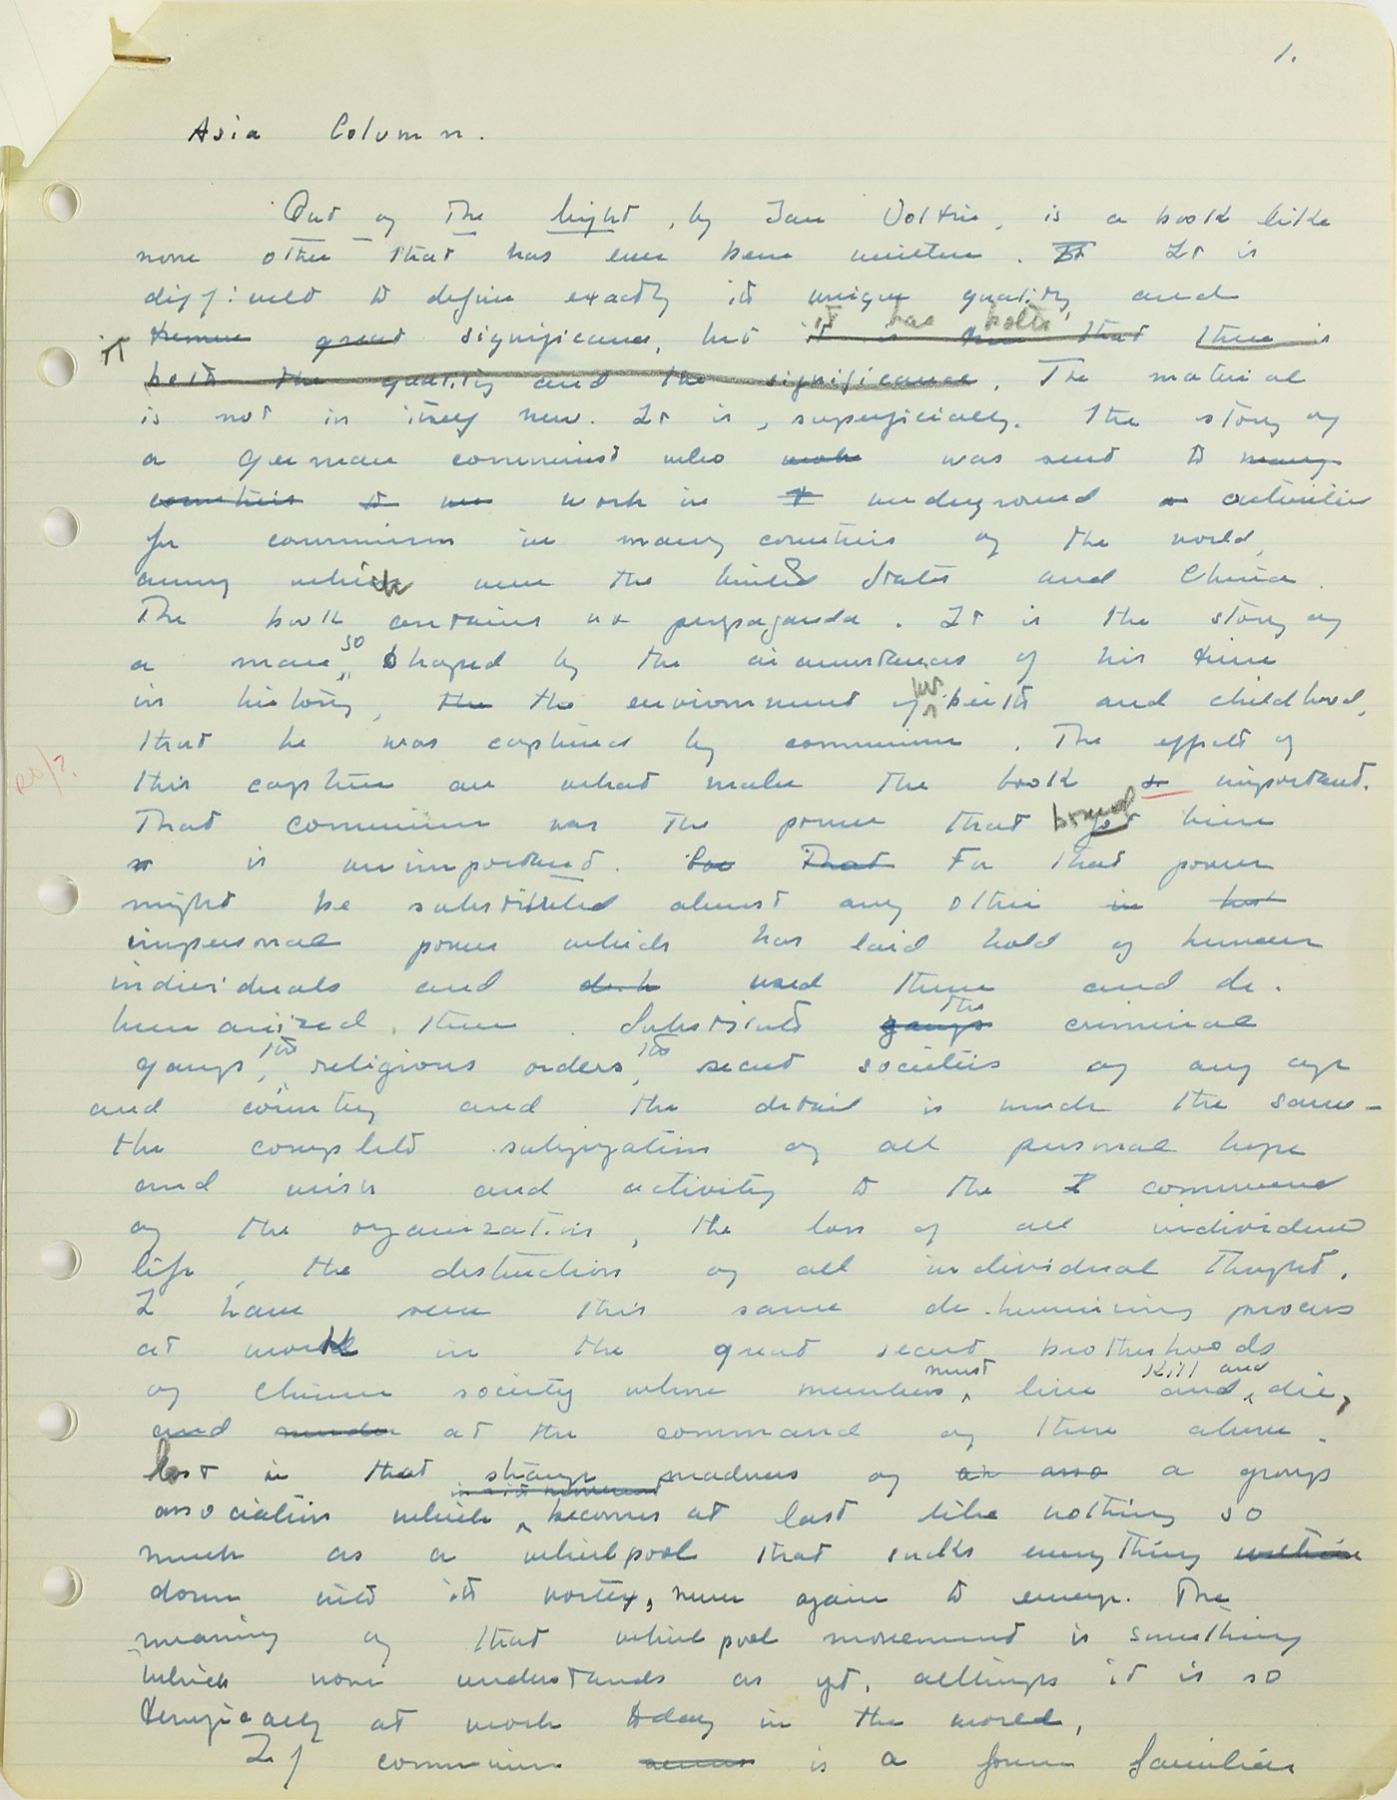 1.
Asia Column.
Out of The Night, by Jan Valtin, is a book like
none other that has ever been written. It It is
difficult to define exactly its unique quality and
it has both
it great significance, but it is that there is
both the quality and the significance. The material
is not in itself new. It is, superficially, the story of
a German communist who was sent to many
countries to work in underground activities
for communism in many countries of the world,
among which were the United States and China.
The book contains no propaganda. It is the story of
so
a man, shaped by the circumstances of his time
his
in history, the the environment of birth and childhood,
that he was captured by communism. The effects of
this capture are what make the book so important.
bound
That communism was the power that got him
is unimportant. That For that power
might be substituted almost any other in
impersonal power which has laid hold of human
individuals and used them and de-
the
humanized them. Substitute gangs criminal
the the
gangs, religious orders, secret societies of any age
and country and the detail is much the same-
the complete subjugation of all personal hope
and wish and activity to the command
of the organization, the loss of all individual
life, the destruction of all individual thought.
I have seen this same de-humanizing process
at work in the great secret brotherhoods
must kill and
of Chinese society whose members live and die,
and murder at the command of those above.
lost in that strange madness of an asso a group
association which becomes at last like nothing so
much as a whirlpool that sucks everything within
down into its vortex, never again to emerge. The
meaning of that whirlpool movement is something
which none understands as yet, although it is so
terrifically at work today in the world,
If communism seems is a form familiar